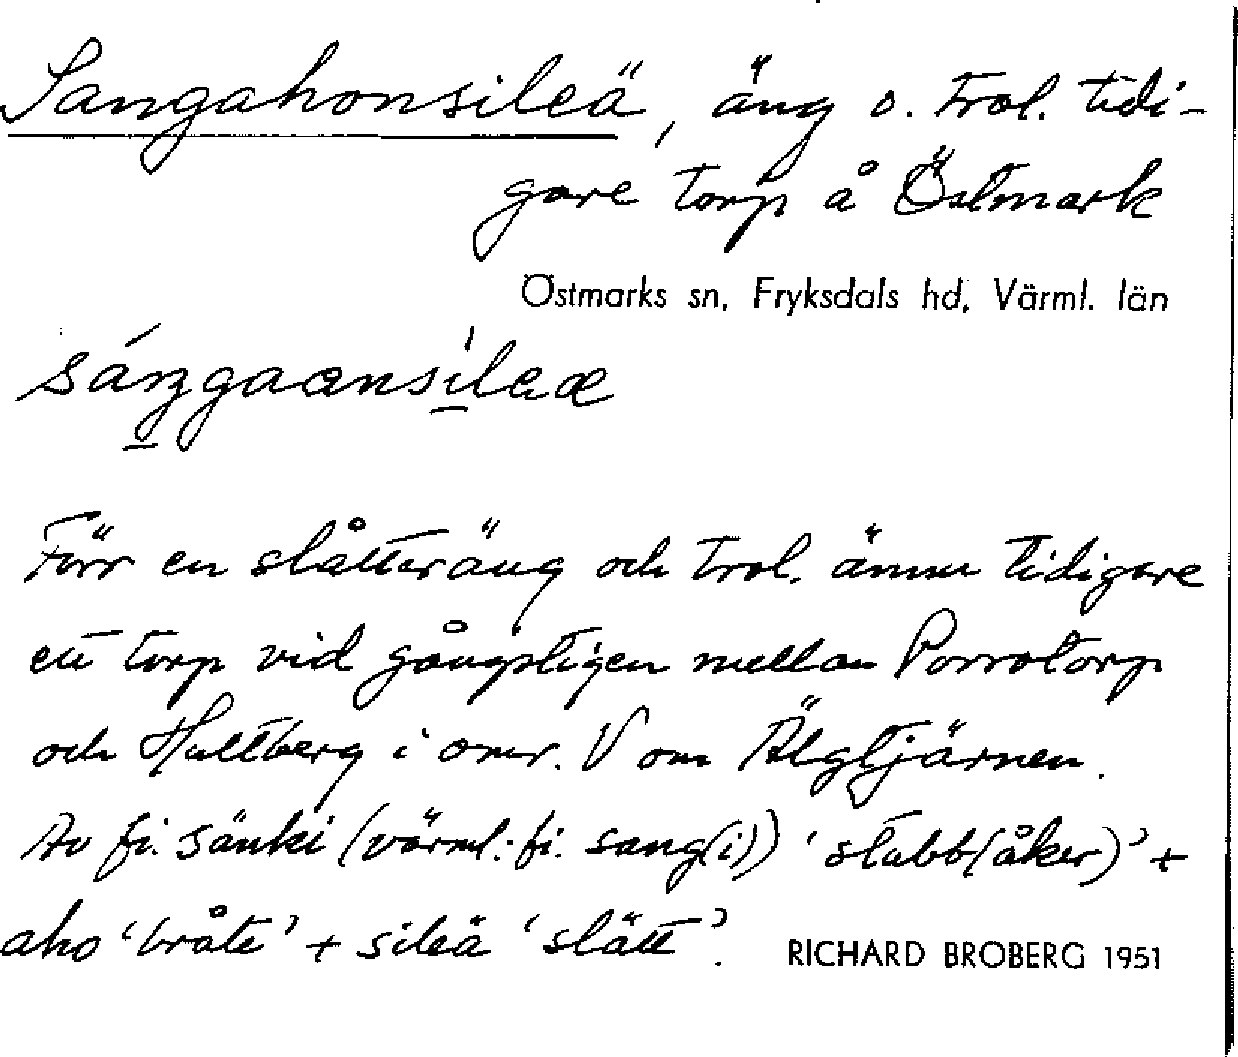 Sangahonsileä, äng o. trol. tidi-
gare torp å Östmark
Östmarks sn, Fryksdals hd, Värml. län
sáŋgaansìleæ
Förr en slåtteräng och trol. ännu tidigare
ett torp vid gångstigen mellan Porrotorp
och Hultberg i omr. V om Älgtjärnen.
Av fi. sänki (värml.-fi. sang(i)) 'stubb(åker)' +
aho 'bråte' + sileä 'slätt'.
RICHARD BROBERG 1951